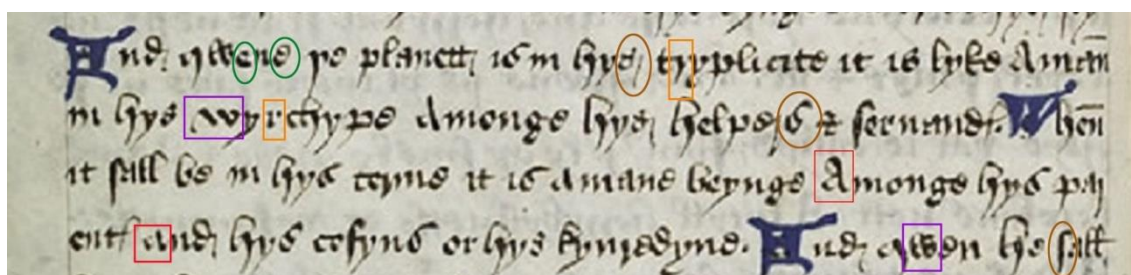 And qwene ye planett is in hys tryplicite it is lyke Aman
in hys wyrchype Amonge hys helpes & seruand. When
it sall be in hys terme it is a mane beynge Amonge hys par
ent and hys cosyns or hys kynredyne. And qwen he sall